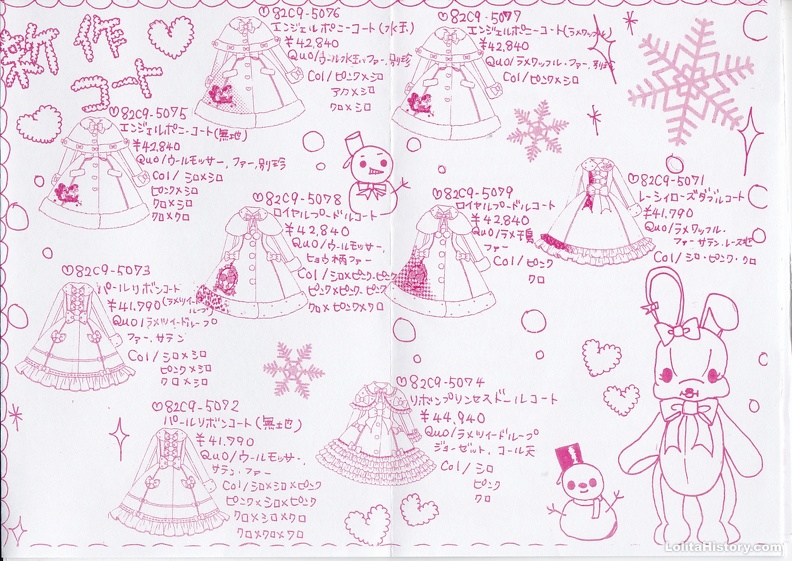 新作
コート
♡82C9-5076
エンジェルポニーコート(水玉)
¥42,840
Quo/ウール水玉,ファー,別珍
Col/ピンク×シロ
アカ×シロ
クロ×シロ
♡82C9-5077
エンジェルポニーコート(ラメワッフル)
¥42,840
Quo/ラメワッフル,ファー,別珍
Col/ピンク×シロ
♡82C9-5075
エンジェルポニーコート(無地)
¥42,840
Quo/ウールモッサー,ファー,別珍
Col/シロ×シロ
ピンク×シロ
クロ×シロ
クロ×クロ
♡82C9-5078
ロイヤルプードルコート
¥42,840
Quo/ウールモッサー,
ヒョウ柄ファー
Col/シロ×ピンク・ピンク
ピンク×ピンク・ピンク
クロ×ピンク×クロ
♡82C9-5079
ロイヤルプードルコート
¥42,840
Quo/ラメ千鳥
ファー
Col/ピンク
クロ
♡82C9-5071
レーシィローズダブルコート
¥41,790
Quo/ラメワッフル・
ファーサテン・レース地
Col/シロ・ピンク・クロ
♡82C9-5073
パールリボンコート
¥41,790(ラメツイード
Quo/ラメツイードループ
ファー、サテン
Col/シロ×シロ
ピンク×シロ
クロ×シロ
♡82C9-5072
パールリボンコート(無地)
¥41,790
Quo/ウールモッサー,
サテン・ファー
Col/シロ×シロ×ピンク
ピンク×シロ×ピンク
クロ×シロ×クロ
クロ×クロ×クロ
♡82C9-5074
リボンプリンセスドールコート
¥44,940
Quo/ラメツイードループ
ジョーゼット、コール天
Col/シロ
ピンク
クロ
LolitaHistory.com